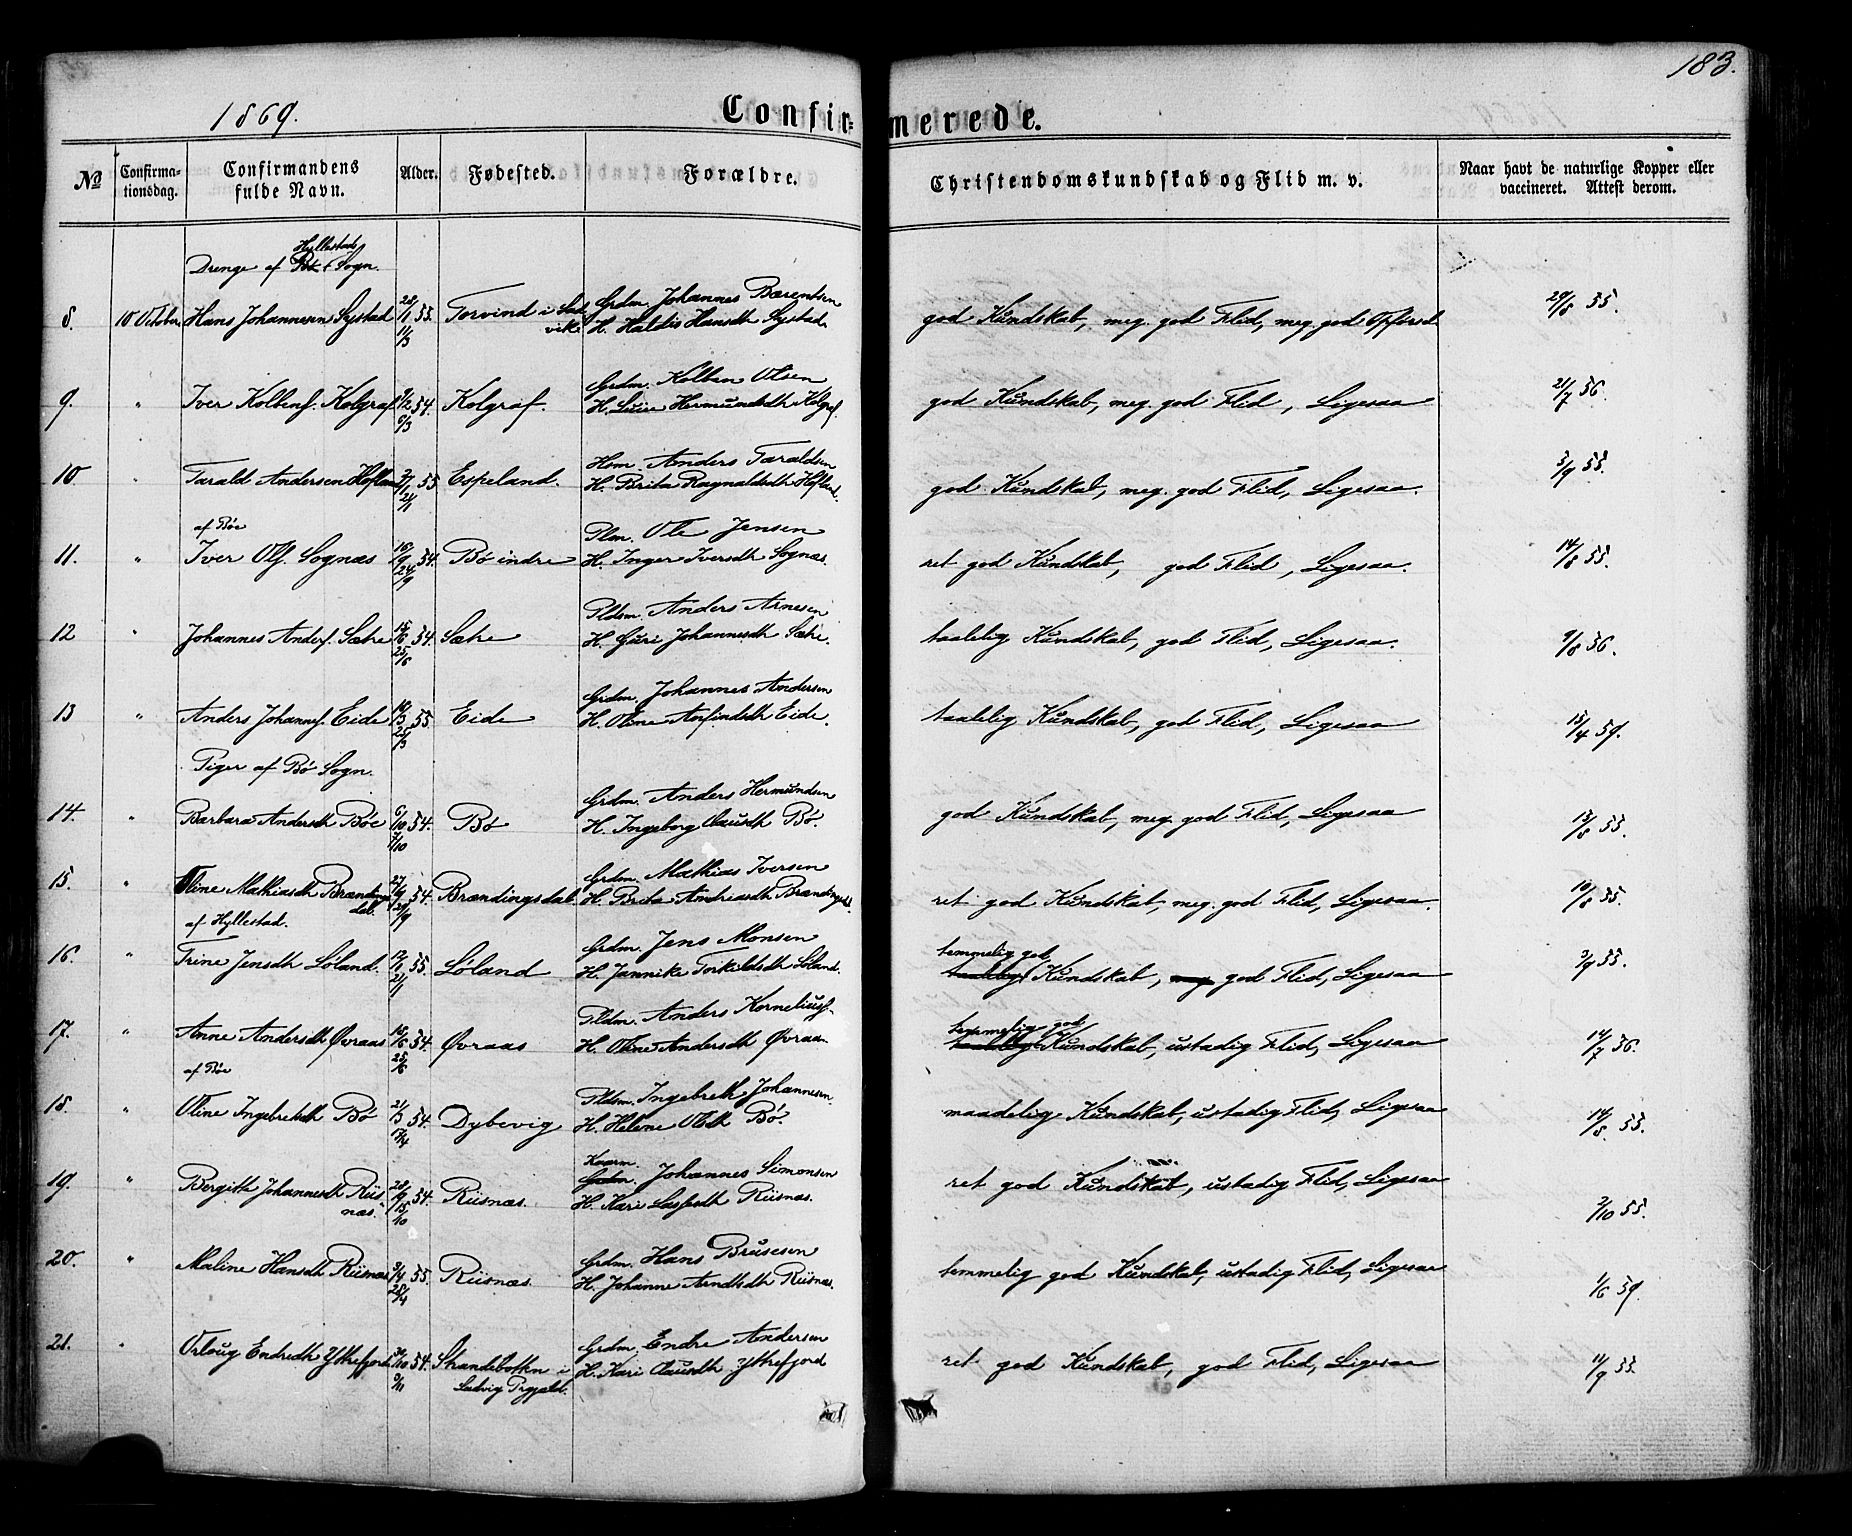 183.
1869.
Confir= merede.
No
Confirma-
tionsdag.
Confirmandens
fulde Navn.
Alder.
Fødested.
Forældre.
Christendomskundskab og Flid m. v.
Naar havt de naturlige Kopper eller
vaccineret. Attest derom.
Hyllestads
Drenge af Bø Sogn.
8. 10 October Hans Johannesen Systad 28/1 55. 11/3 Torvind i Lad
vik Grdm. Johannes Bærentsen
H. Haldis Hansdtr Systad. god Kundskab, meg. god Flid, meg. god Opførsel 29/8 55.
9. " Iver Kolbenf. Kolgraf 54. 6/3 Kolgraf. Grdm. Kolben Olsen
H. Hermundsdtr Kolgraf. god Kundskab, meg. god Flid, Ligesaa 21/7 56.
10 " Tarald Andersen Hofland 55 21/1 Espeland. Hsm. Anders Taraldsen
H. Brita Ragnaldsdtr Hofland. god Kundskab, meg. god Flid, Ligesaa. 3/9 55.
af Bøe
11. " Iver Olf. Sognæs 16/9 54. 24/9 Bø indre Plm. Ole Jensen
H. Inger Iversdtr Sognæs. ret god Kundskab, god Flid, Ligesaa. 14/8 55.
12 " Johannes Andersf. Sæhe 54. 25/6 Sæhe Pldsm. Anders Arnesen
H. Guri Johannesdtr Sæhe. taalelig Kundskab, god Flid, Ligesaa. 9/8 56.
13 " Anders Johannesf. Eide 55. 25/3 Eide Grdm. Johannes Andersen
H. Oline Anfindsdtr Eide. taalelig Kundskab, god Flid, Ligesaa 15/4 59.
Piger af Bø Sogn.
14. " Barbara Andersdtr Bøe 6/10 54. 7/10 Bø Grdm. Anders Hermundsen
H. Ingeborg Clausdtr Bø. god Kundskab, meg. god Flid, Ligesaa 13/8 55.
15. " Oline Mathiasdtr Brændings
dal. 27/9 54. 29/9 Brændingsdal. Grdm. Mathias Iversen
H. Brita Andreasdtr Brændingsd. ret god Kundskab, meg. god Flid, Ligesaa. 10/8 55.
af Hyllestad.
16. " Trine Jensdtr Løland. 12/1 55. 21/1 Løland Grdm. Jens Monsen
H. Jannike Torkildsdtr Løland. temmelig god
taalelig Kundskab, meg god Flid, Ligesaa 3/9 55.
17. " Anne Andersdtr Øvraas 16/6 54. 25/6 Øvraas Pldm. Anders Korneliusf.
H. Oline Andersdtr Øvraas. temmelig god
taalelig Kundskab, ustadig Flid, Ligesaa 14/7 56.
af Bøe
18. " Oline Ingebretsdtr Bø 21/3 54. 17/4 Dybevig Pldsm. Ingebreth Johannesen.
H. Helene Olsdtr Bø. maadelig Kundskab, ustadig Flid, Ligesaa 14/8. 55.
19. " Bergitte Johannesdtr Riis
næs. 28/9 54. 15/10 Riisnæs. Kaarm.
Grdm. Johannes Simonsen
H. Kari Lassesdtr Riisnæs. ret god Kundskab, ustadig Flid, Ligesaa 2/10 55.
20. " Maline Hansdtr Riisnæs 9/4 55. 25/4 Riisnæs. Grdm. Hans Brusesen
H. Johanne Arndtsdtr Riisnæs. temmelig god Kundskab, ustadig Flid, Ligesaa 1/6 59.
21. " Orloug Endredtr Yttrefjord 30/10 54. Strandebotten i
Ladvig Prgjæld. Grdm. Endre Andersen
H. Kari Clausdtr Yttrefjord ret god Kundskab, god Flid, Ligesaa 11/9 55